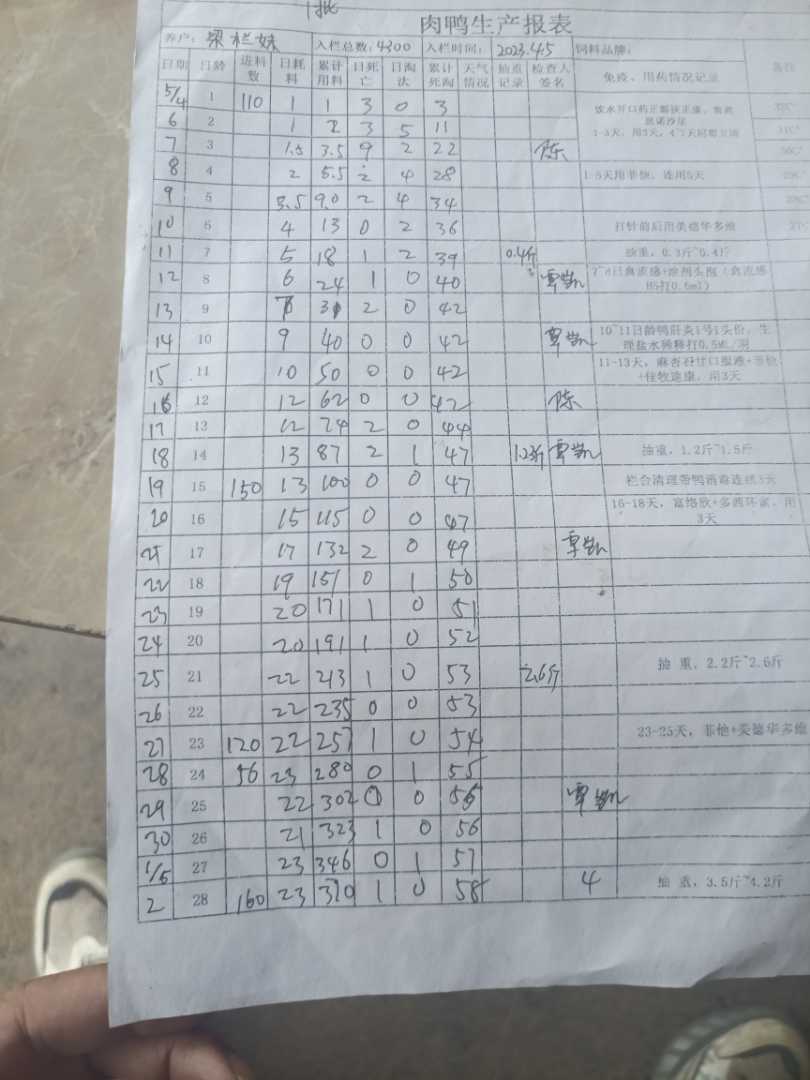 1批
肉鸭生产报表
养户: 梁栏妹 入栏总数: 4300 入栏时间: 2023.4.5 饲料品牌:
日期 日龄 进料数 日耗料 累计用料 日死亡 日淘汰 累计死淘 天气情况 抽重记录 检查人签名 免疫、用药情况记录 备注
5/4 1 110 1 1 3 0 3
6 2 1 2 3 5 11
7 3 1.5 3.5 9 2 22 陈
8 4 2 5.5 2 4 28 1-5天用菲恢,连用5天
9 5 3.5 9.0 2 4 34
10 6 4 13 0 2 36 打针前后用美德华多维
11 7 5 18 1 2 39 0.4斤 抽重,0.3斤~0.4斤
12 8 6 24 1 0 40 覃凯
13 9 7 31 2 0 42
14 10 9 40 0 0 42 覃凯 10~11日龄鸭肝炎1号1头份,生理盐水稀释打0.5ML/羽
15 11 10 50 0 0 42
16 12 12 62 0 0 42 陈
17 13 12 74 2 0 44
18 14 13 87 2 1 47 1.2斤 覃凯 抽重,1.2斤~1.5斤
19 15 150 13 100 0 0 47 栏舍清理带鸭消毒连续3天
20 16 15 115 0 0 47 16-18天,富络欣+多西环素,用3天
21 17 17 132 2 0 49 覃凯
22 18 19 151 0 1 50
23 19 20 171 1 0 51
24 20 20 191 1 0 52
25 21 22 213 1 0 53 2.6斤 抽 重,2.2斤~2.6斤
26 22 22 235 0 0 53
27 23 120 22 257 1 0 54 23-25天,菲他+美德华多维
28 24 56 23 280 0 1 55
29 25 22 302 0 0 56 覃凯
30 26 21 323 1 0 56
1/5 27 23 346 0 1 57
2 28 160 23 370 1 0 58 4 抽 重,3.5斤~4.2斤